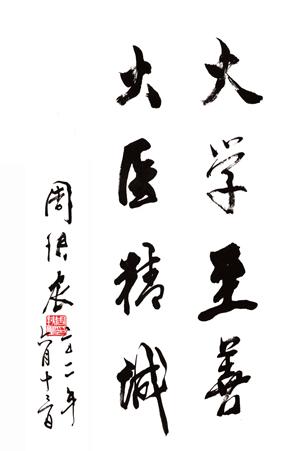 大学至善
大医精诚
周
二〇一二年
六月十三日